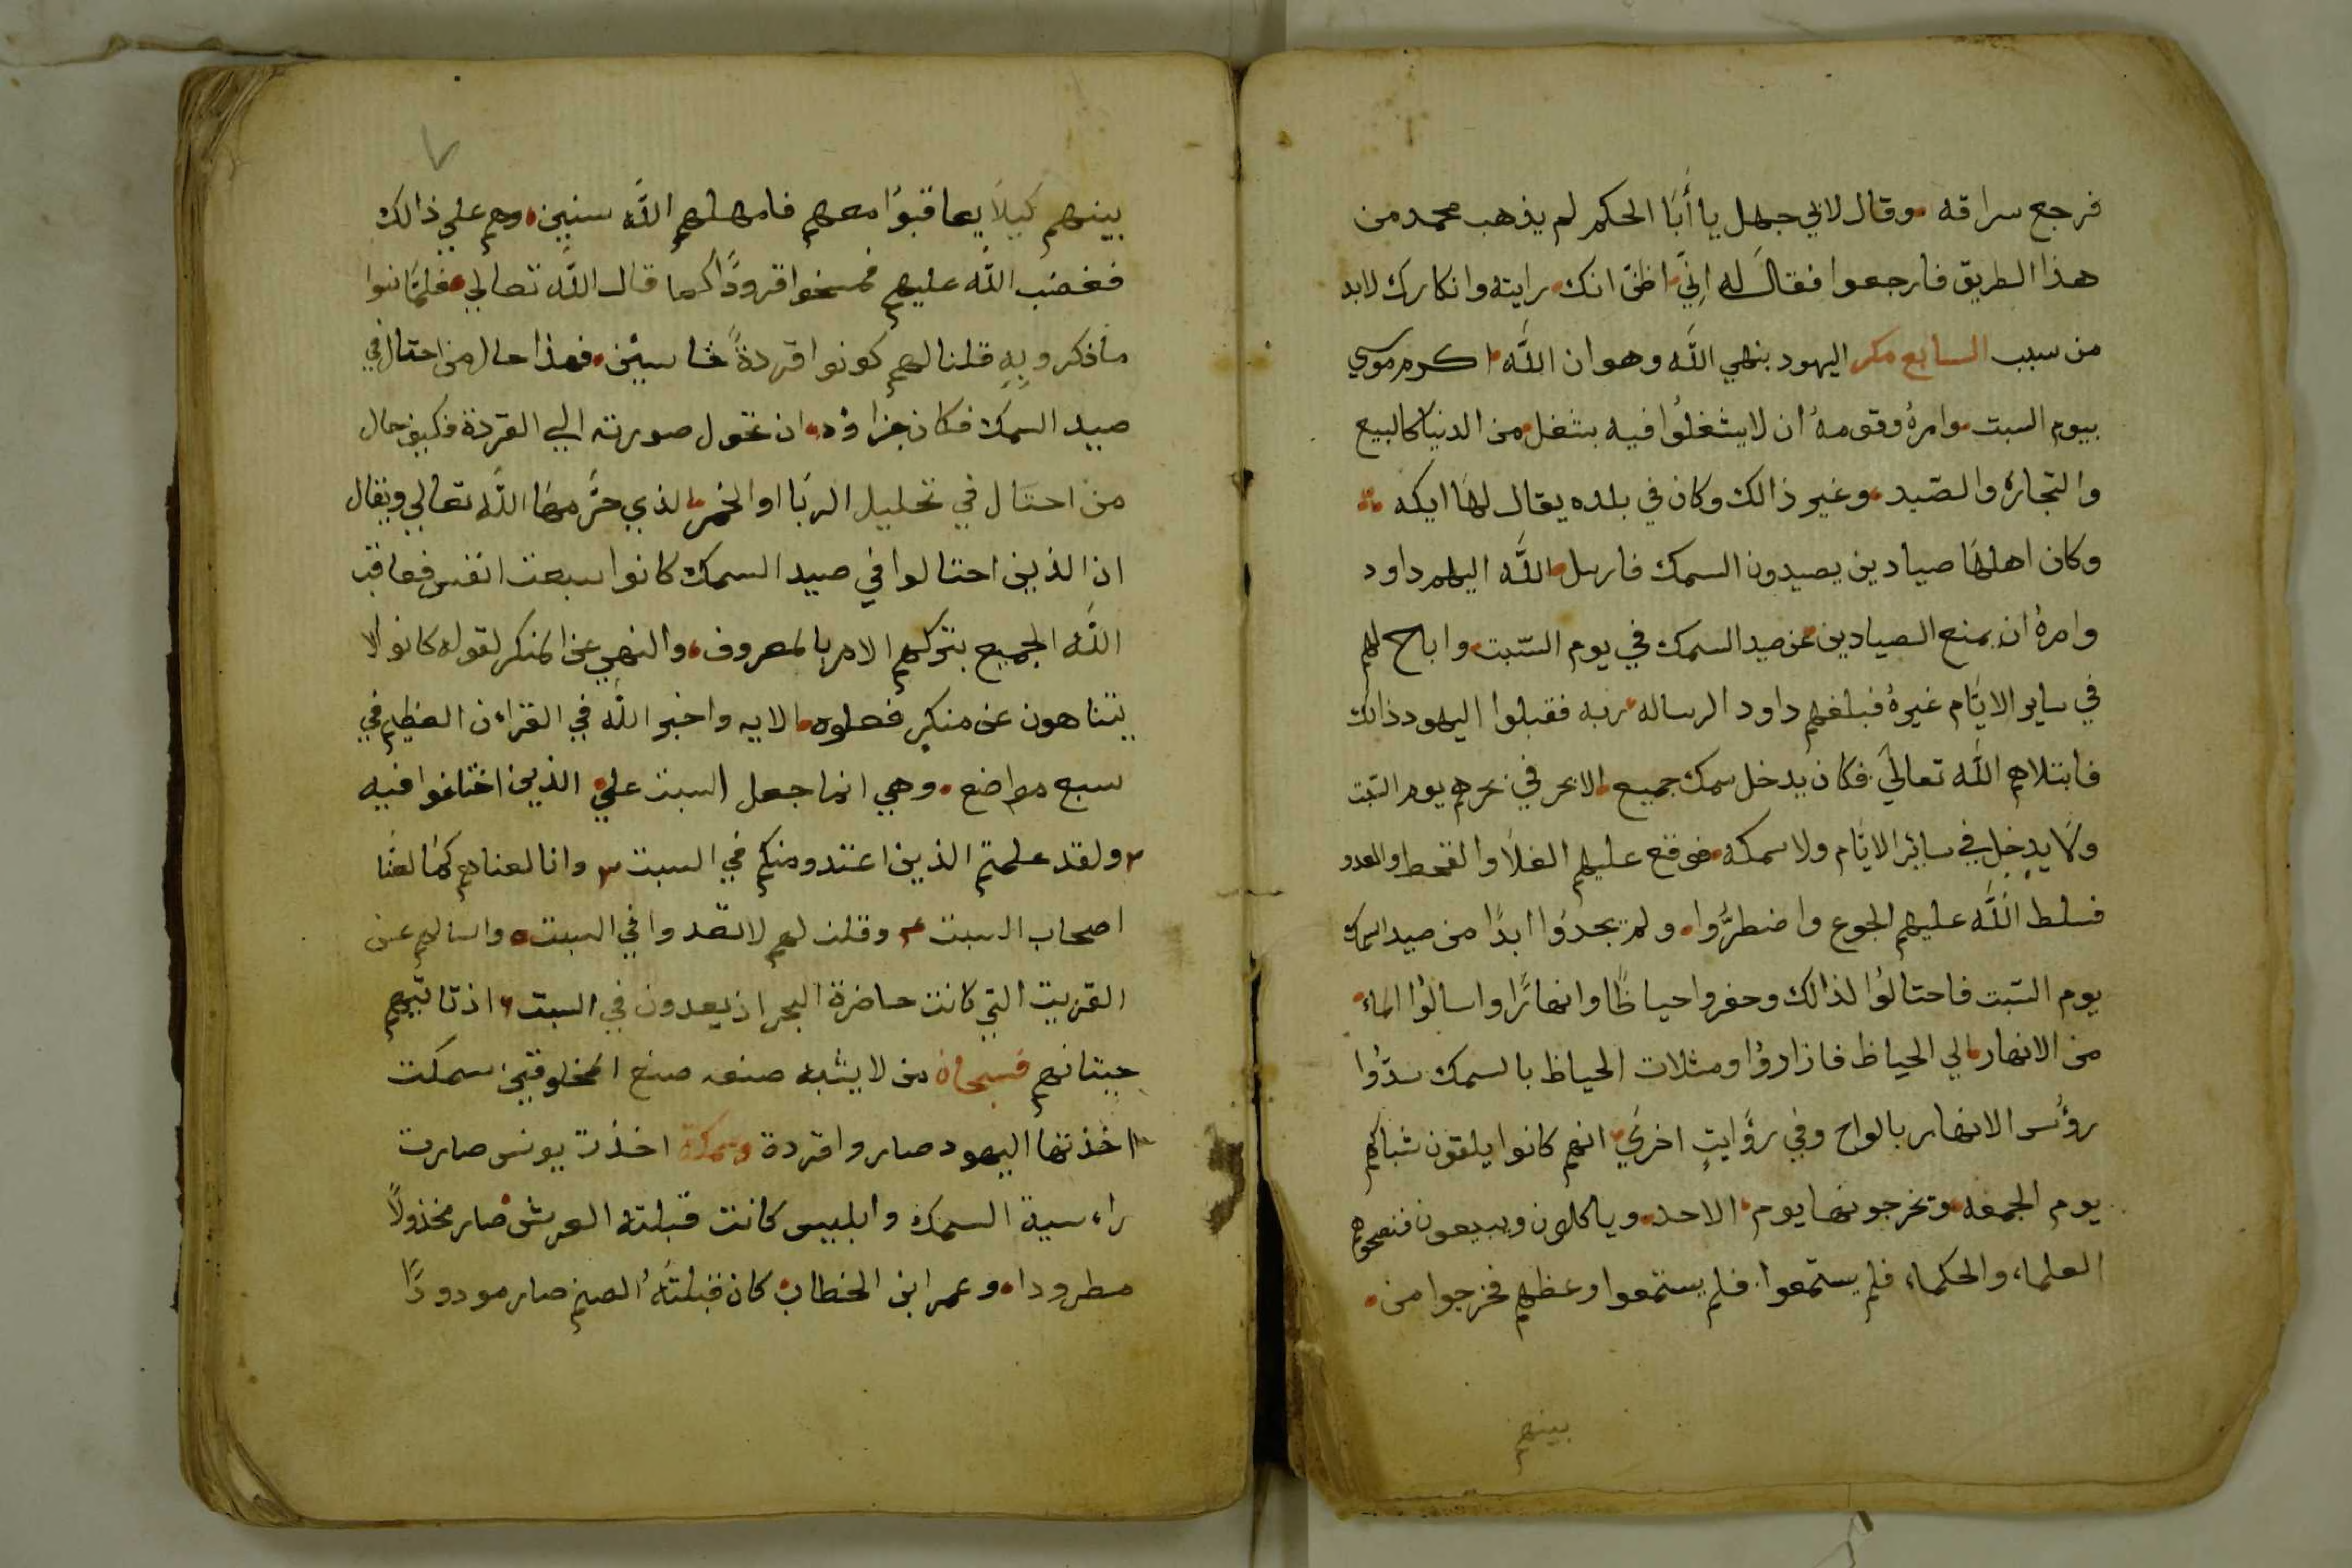 فرجع سراقه وقال لابي جهل يا أبَا الحكم لم يذهب محمد من
هذا الطريق فارجعوا فقالَ له اِنّي اظنّ انك رايته وانكارك لابد
من سبب السابع مكر اليهود بنهي اللّه وهو ان اللّه اكرم موسي
بيوم السبت وامرهُ وقومهُ ان لا يشغلُوا فيه بشغل من الدنيا كالبيع
والتجارة والصّيد وغير ذالك وكان في بلده يقال لهَا ايكه
وكان اهلهَا صيادين يصيدون السمك فارسل اللّه اليهم داود
وامرهُ ان يمنع الصيادين عن صيد السمك في يوم السّبت واباح لهم
في ساير الايَّام غيرهُ فبلغهم داود الرساله ربه فقبلوا اليهود ذالك
فابتلاهم اللّه تعاليَ فكان يدخل سمك جميع الابحر في نحرهم يوم السّبت
ولَا يدخل في سائر الايَّام ولا سمكه فوقع عليهم الغلاَ والقحط والعدو
فسلط اللّه عليهم الجوع واضطرُّوا ولم يجدُوا ابدًا من صيد السمك
يوم السّبت فاحتالوُا لذالك وحفروا حياظًا وانهارًا واسالوُا الماءَ
من الانهار الي الحياظ فازاروُا ومثلات الحياظ بالسمك سدّوُا
روُس الانهار بالواح وفي روَايتٍ اخريَ انهم كانوا يلقون شباكهم
يوم الجمعه وتخرجونها يوم الاحد وياكلون ويبيعون فنصحوهم
العلماء والحكماء فلم يستمعوا فلم يستمعوا وعظهم فخرجوا من
بينهم
٧
بينهم كيلَا يعاقبوُا معهم فامهلهم اللّه سنين وهم علي ذالك
فغضب اللّه عليهم فمسخوا قرودًا كما قال اللّه تعالي فلمَّا نسوا
ما ذكروا بِهِ قلنا لهم كونوا قردةً خاسئين فهذا حال من احتال في
صيد السمك فكان جزاؤه ان تحول صورته الي القردة فكيف حال
من احتال في تحليل الربَا او الخمر الذي حرَّمهَا اللّه تعالي ويقال
ان الذين احتالوا في صيد السمك كانوا سبعت انفس فعاقب
اللّه الجميع بتركهم الامر بالمعروف والنهي عن المنكر لقوله كانوا لا
يتناهون عن منكر فعلوه الايه واخبر اللّه في القراءن العظيم في
سبع مواضع وهي انما جعل السبت علي الذين اختلفوا فيه
٢ ولقد علمتم الذين اعتدو منكم في السبت ٣ وانا لعناهم كمَا لعنَّا
اصحاب السبت ٤ وقلنا لهم لا تعدوا في السبت ٥ واسالهم عن
القريت التي كانت حاضرة البحر اذ يعدون في السبت ٦ اذ تاتيهم
حيتانهم فسبحان من لا يشبه صنعه صنع المخلوقين سمكت
اخذتها اليهود صاروا قردة وسمكة اخذت يونس صارت
راءسية السمك وابليس كانت قبلته العرش صار مخذولاً
مطرودا وعمر ابن الخطاب كان قبلتهُ الصنم صار مودودًا